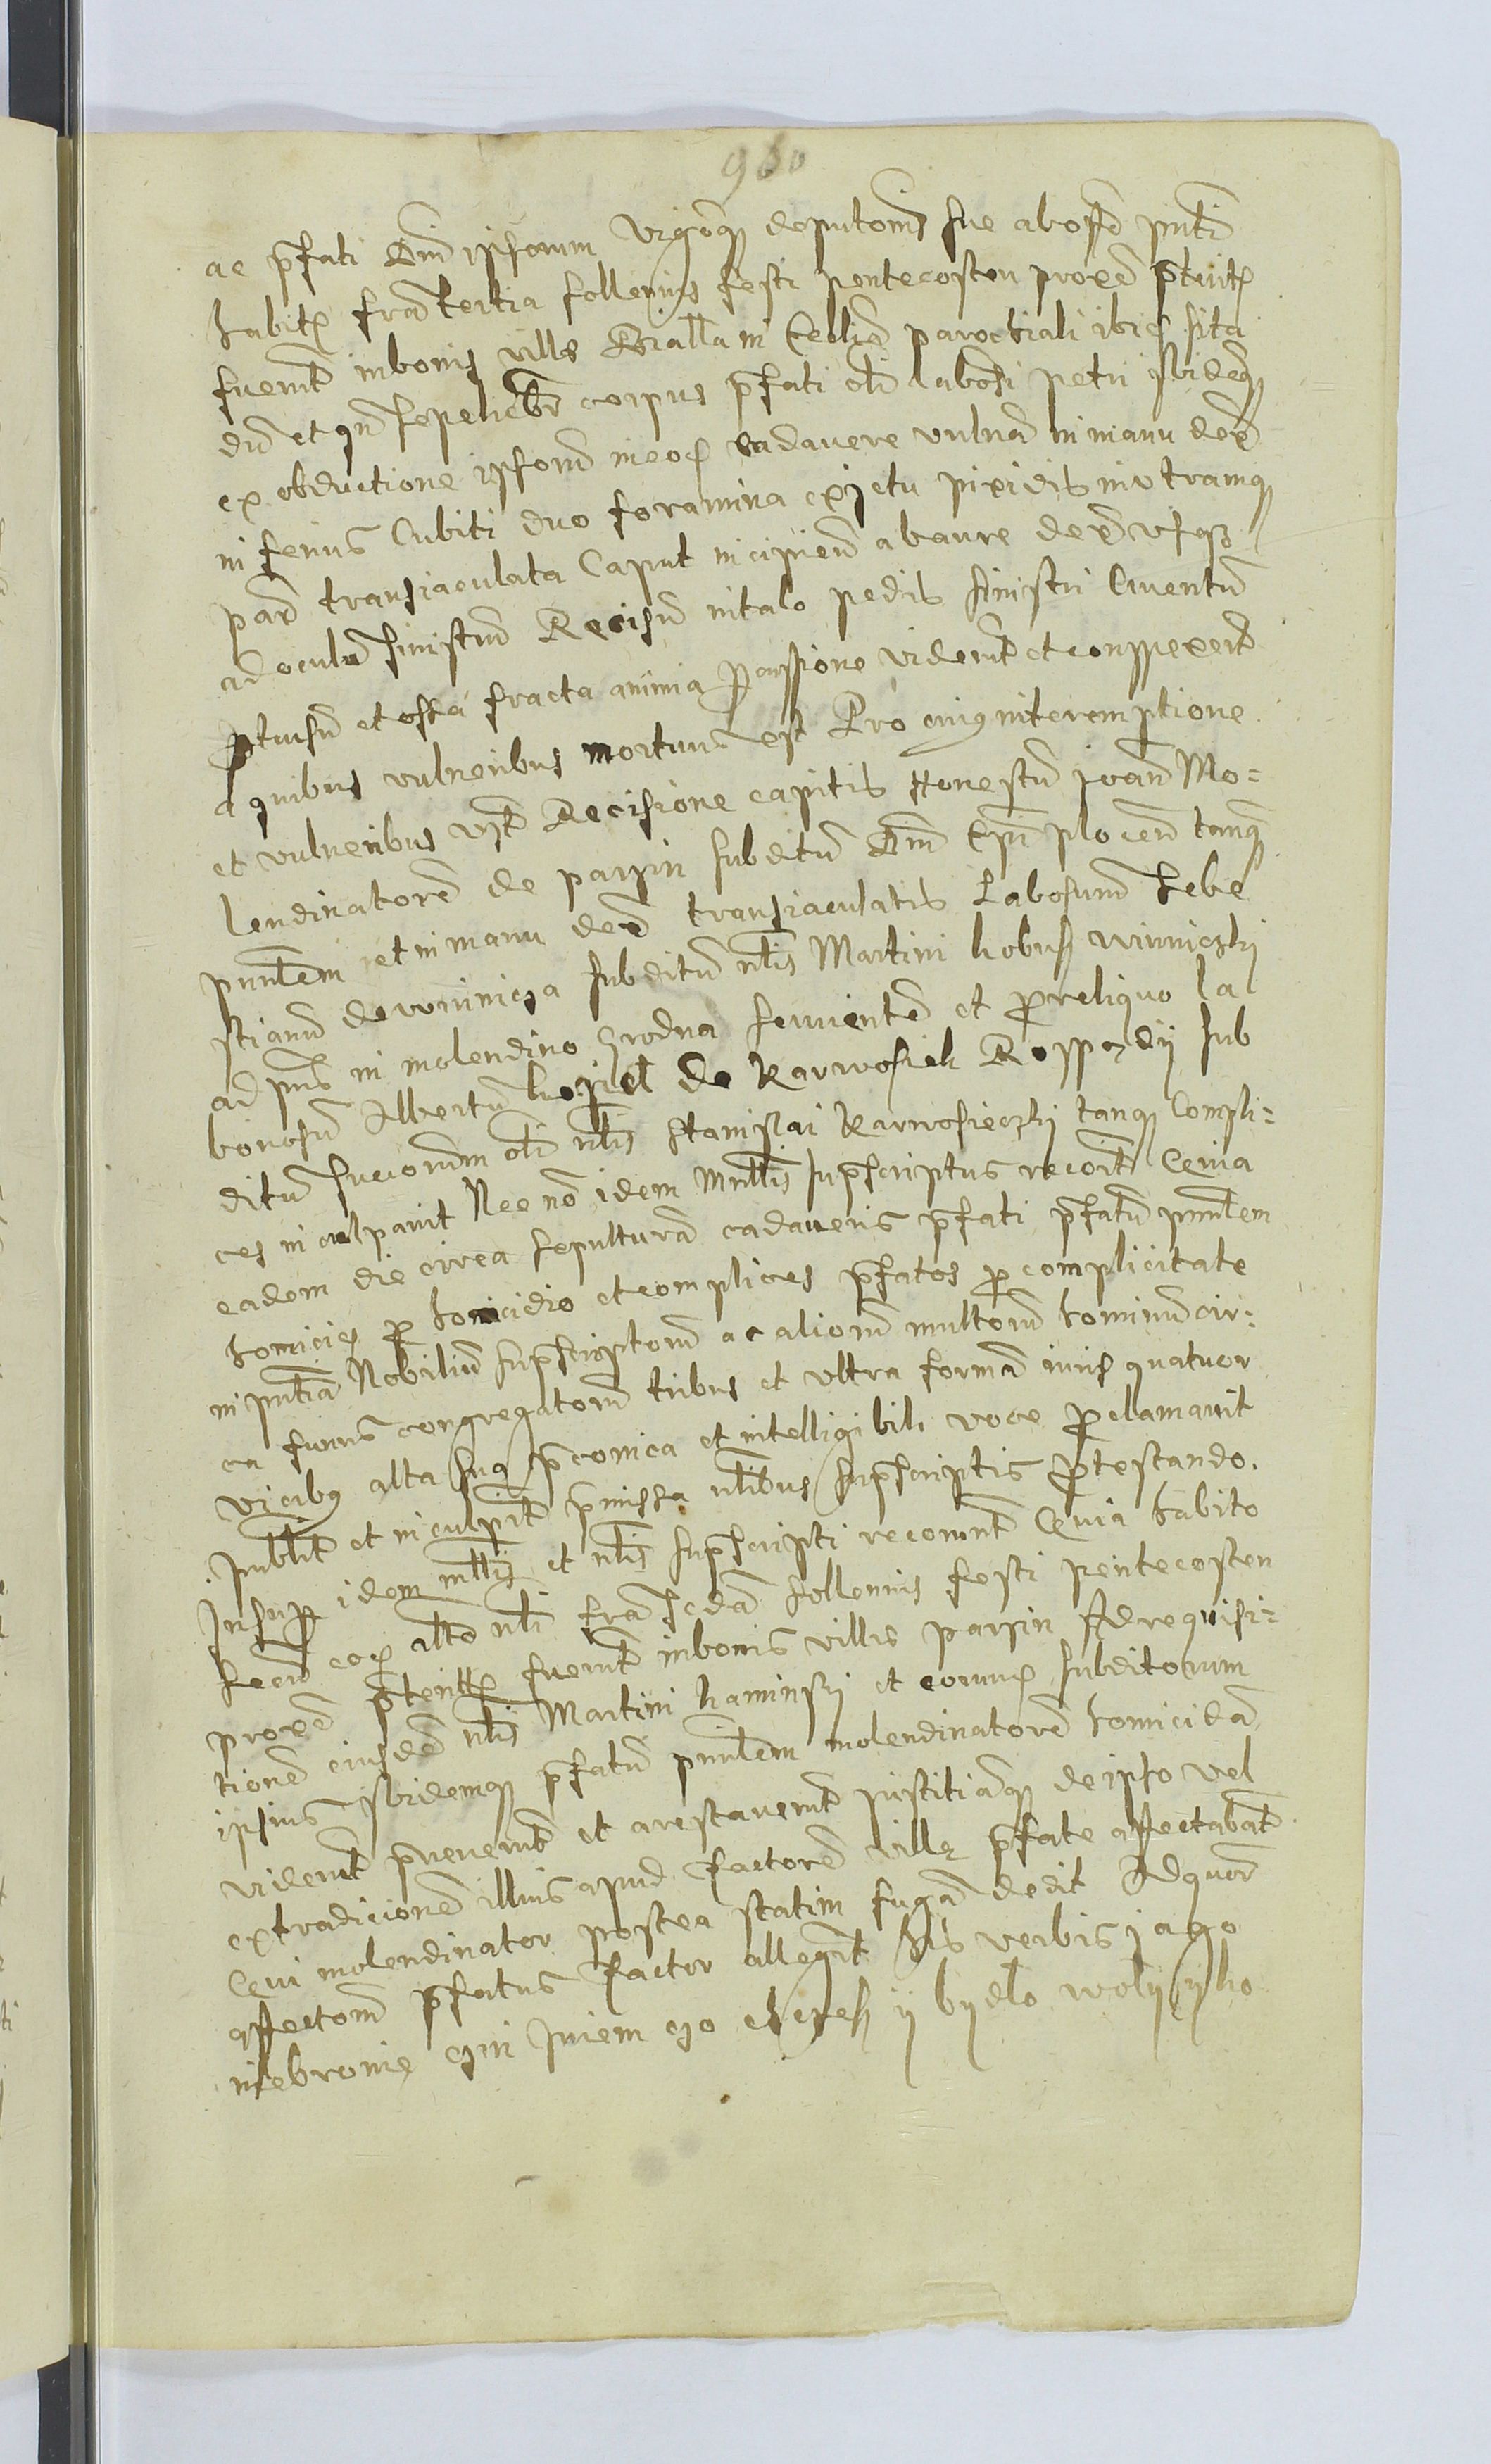 960
ac pfati Dni ipsorum vigoreqz deputoms sue ab offo pnti
habite fria tertia sollennis festi pentecosten proxe pterite
fuernt in bonis ville Bialla in Ecclia parochiali ibide sita
du et qn sepeliebtr corpus pfati oli labosi petri ibideqz
ex obductione ipsoru in eode cadavere vulnera in manu dexa
inferius Cubiti duo foramina ex jctu pixidis in utramqz
parte transiaculata Caput incipien ab aure dexa vsqz
ad oculu sinistru Recisu in talo pedis sinistri Cruentu
ptusu et ossa fracta animia pcussione videnrt et conspexert
a quibus vulneribus mortuus est Pro cuius interemptione
et vulneribus vzt Recisione capitis Honestu joane Mo=
lendinatore de parzin subditu Dni Epi plocen tanqz
pnnlem et in manu dexa transiaculatis Labosum Sebe
stianu de winnicza subditu nlis Martini kobus winniczki
ad pns in molendino Grodna servuente et p reliquo la
boriosu Albertu kopiel de Karwosiek Koppazdij sub
ditu succorum oli nlis Stanislai Karwosieczki tanqz Compli=
ces inculpauit Nec no idem Mnlis supscriptus recoit Qeuia
eadem die circa sepultura cadaueris pfati pfatu pnnlem
homicida p homicidio et complices pfatos p complicitate
in pntia Nobiliu supscriptoru ac alioru multoru hominu cir=
ca funus congregatoru tribus et ultra forma iuris quatuor
vicibus alta suaqz pconica et intelligibili voce pclamauit
publit et inculpit pmissa nlibus supscriptis ptestando.
Insup idem mlis et nlis supscripti recorunt Qeuia habito
secu eode alto nli fria scda sollennis festi pentecosten
proxe pterite fuernt in bonis villis parzin Ad requisi=
tione eiusdem nlis Martini kaminski et eorunde subditorum
ipsius ibidemqz pfatu pnnlem molendinatore homicida
videnrt puenernt et arestauernt justitiaqz de ipso vel
extradicione illius apud factore ville pfate affectabant
Qeui molendinator postea statim fuga dedit Ad quor
affectom pfatus factor allegit his verbis jago
niebronie czin sniem czo chcesz ij bydlo woly ijko